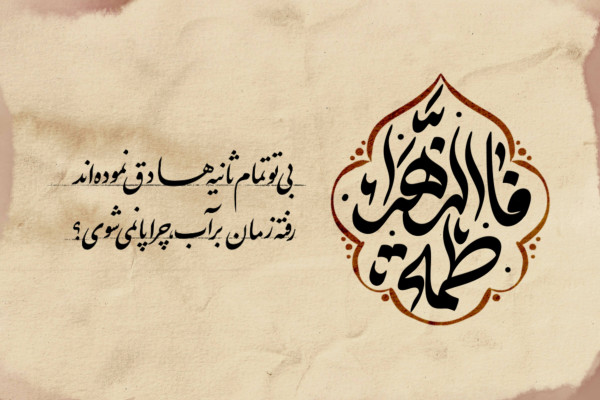 فاطمة الزهراء
بی تو تمام ثانیه ها دق نموده اند
رفته زمان بر آب، چرا پا نمی شوی؟